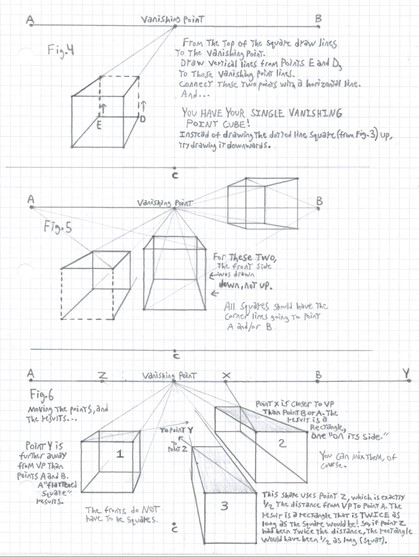 A Vanishing Point B
Fig.4
From The Top of The Square draw lines
To The Vanishing Point.
Draw Vertical lines from Points E and D,
To Those Vanishing Point lines.
Connect Those Two points with a horizontal line.
And...
YOU HAVE YOUR SINGLE VANISHING
POINT CUBE!
Instead of drawing The dotted line square (from Fig-3) up,
Try drawing it downwards.
E D
C
A Vanishing Point B
Fig.5
For These Two,
The front side
was drawn
down, not up.
All Squares should have The
Corner lines going to Point
A and/or B
C
A Z Vanishing Point X B Y
Fig.6
Moving The Points, and
The results...
Point X is closer to VP
Than Point B or A. The
result is a
Rectangle,
One "on iTs Side."
You can mix Them, of
course.
Point Y is
further away
from VP Than
Points A and B.
A "flattered
Square"
results.
To Point Y
To Point Z
1
2
3
The fronts do NOT
have To be Squares.
C
This Shape uses Point Z, which is exactly
1/2 The distance from VP To Point A. The
result is a rectangle That is TWICE as
long as The Square would be! So if point Z
had been Twice The distance, The rectangle
would have been 1/2 as long (Squat).